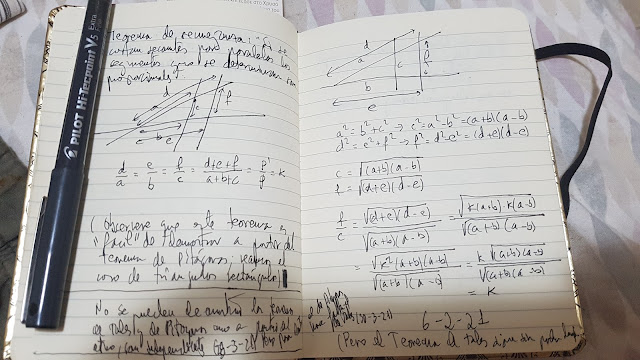 PILOT Hi-Tecpoint V5 Extra Fine
Teorema de semejanza: "Si se
cortan secantes por paralelas los
segmentos que se determinan son
proporcionales".
d a c f
b
e
d/a = e/b = f/c = (d+e+f)/(a+b+c) = P'/P = k
(Obsérvese que este teorema es
"fácil" de demostrar a partir del
teorema de Pitágoras;
caso de triángulos rectángulos)
No se pueden demostrar
de Tales y de Pitágoras uno a partir del
otro, son independientes
d
a c f
b
e
a² = b² + c² → c² = a² - b² = (a+b)(a-b)
d² = e² + f² → f² = d² - e² = (d+e)(d-e)
c = √(a+b)(a-b)
f = √(d+e)(d-e)
f/c = √(d+e)(d-e) / √(a+b)(a-b) = √k(a+b)·k(a-b) / √(a+b)(a-b)
= √k²(a+b)(a-b) / √(a+b)(a-b) = k √(a+b)(a-b) / √(a+b)(a-b)
= k
6-2-21
(Pero el Teorema de Tales sigue sin